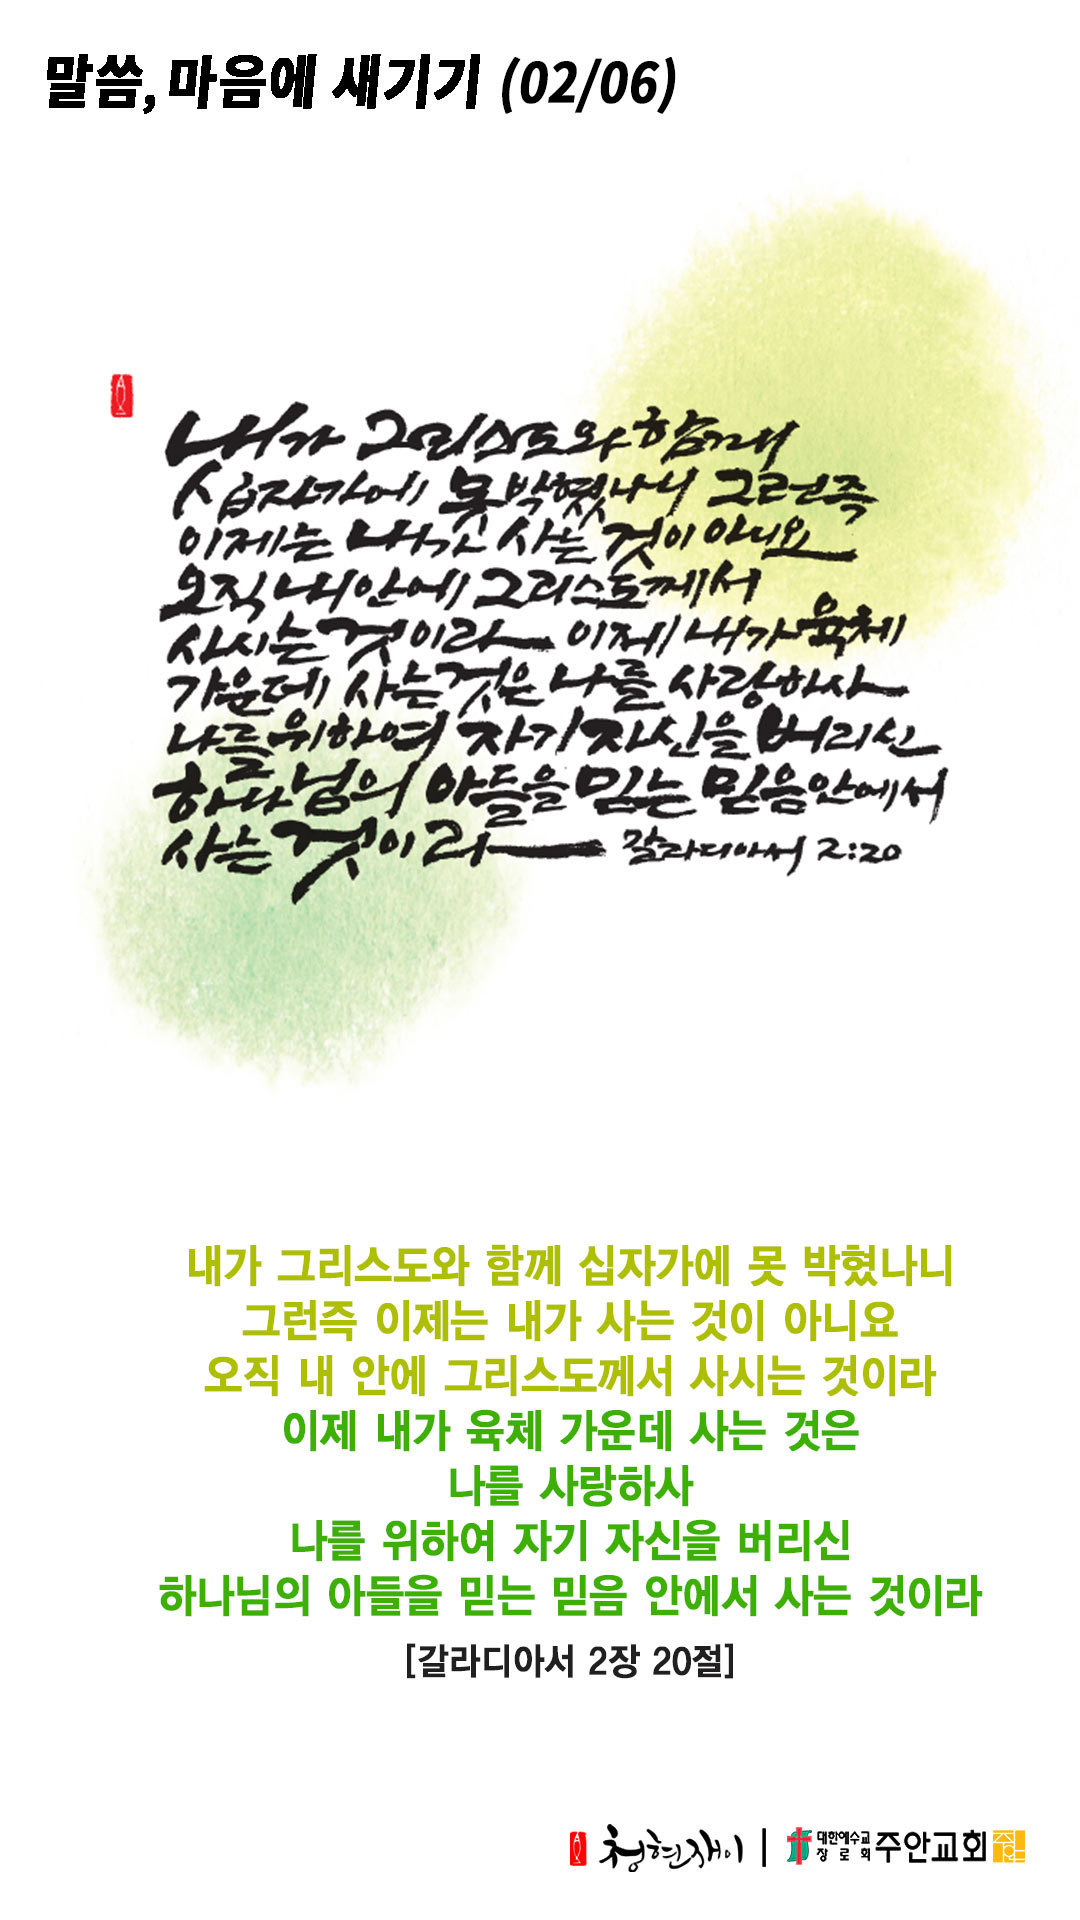 말씀, 마음에 새기기 (02/06)
내가 그리스도와 함께
십자가에 못 박혔나니 그런즉
이제는 내가 사는 것이 아니요
오직 내 안에 그리스도께서
사시는 것이라 이제 내가 육체
가운데 사는 것은 나를 사랑하사
나를 위하여 자기 자신을 버리신
하나님의 아들을 믿는 믿음 안에서
사는 것이라 갈라디아서 2:20
내가 그리스도와 함께 십자가에 못 박혔나니
그런즉 이제는 내가 사는 것이 아니요
오직 내 안에 그리스도께서 사시는 것이라
이제 내가 육체 가운데 사는 것은
나를 사랑하사
나를 위하여 자기 자신을 버리신
하나님의 아들을 믿는 믿음 안에서 사는 것이라
[갈라디아서 2장 20절]
청현재이 | 대한예수교장로회 주안교회